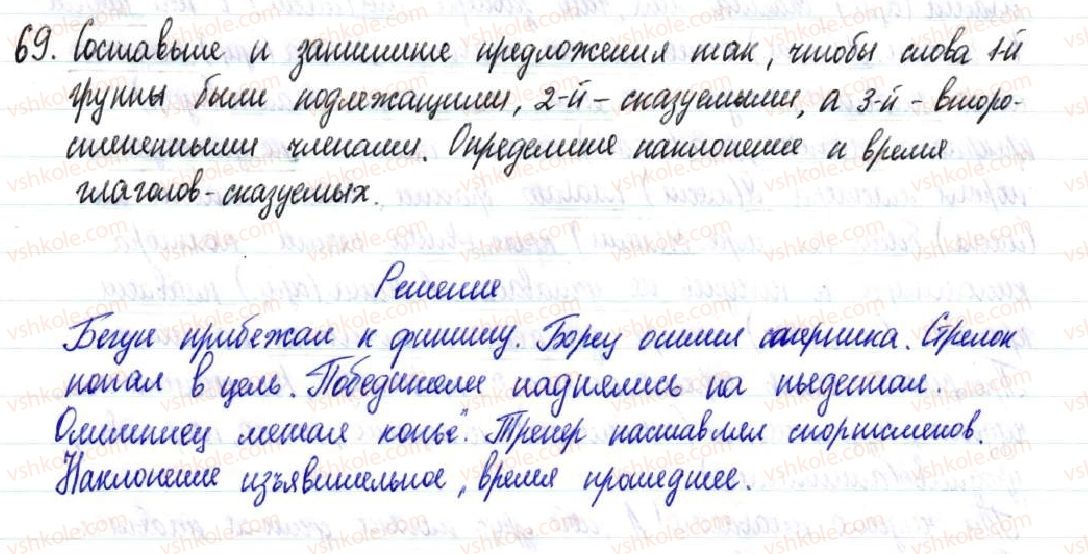 69. Составьте и запишите предложения так, чтобы слова 1-й
группы были подлежащими, 2-й - сказуемыми, а 3-й - второ-
степенными членами. Определите наклонение и время
глаголов-сказуемых.
Решение
Бегун прибежал к финишу. Борец осилил соперника. Стрелок
попал в цель. Победители поднялись на пьедестал.
Олимпиец метал копьё. Тренер наставлял спортсменов.
Наклонение изъявительное, время прошедшее.